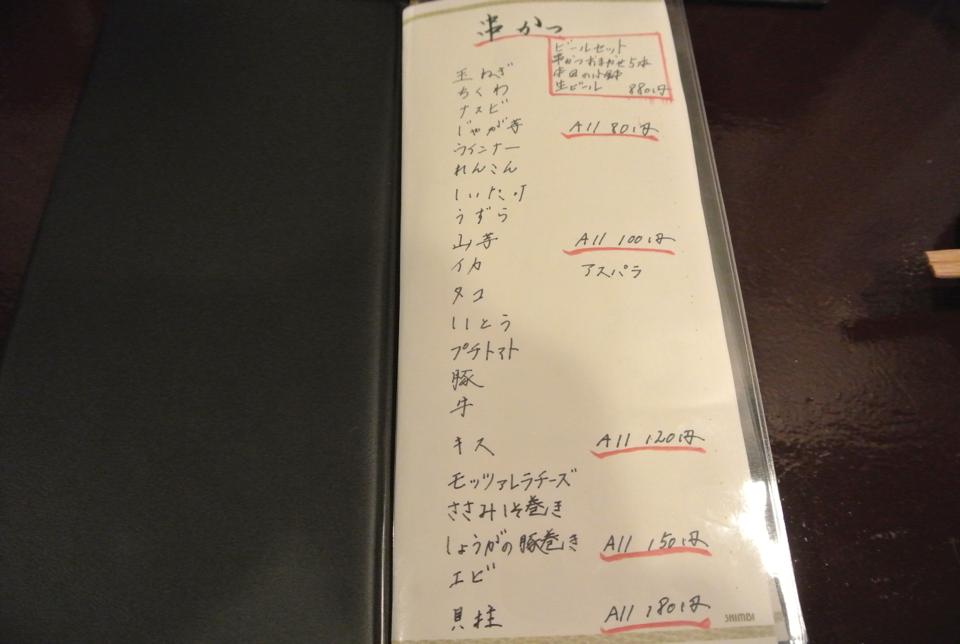 串かつ
ビールセット
串かつおまかせ5本
本日の小鉢
生ビール 880円
玉ねぎ
ちくわ
ナスビ
じゃが芋 All 80円
ウインナー
れんこん
しいたけ
うずら
山芋 All 100円
イカ アスパラ
タコ
いとう
プチトマト
豚
牛
キス All 120円
モッツァレラチーズ
ささみしそ巻き
しょうがの豚巻き All 150円
エビ
貝柱 All 180円
SHIMBI